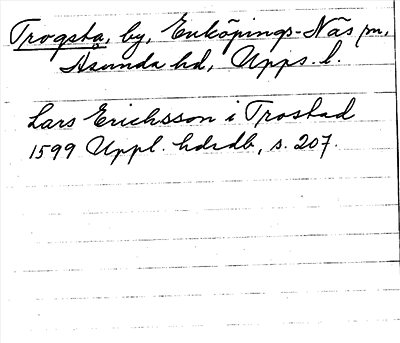 Trogsta, by, Enköpings-Näs sn,
Åsunda hd, Upps. l.
Lars Erichsson i Trostad
1599 Uppl. hdrdb, s. 207.